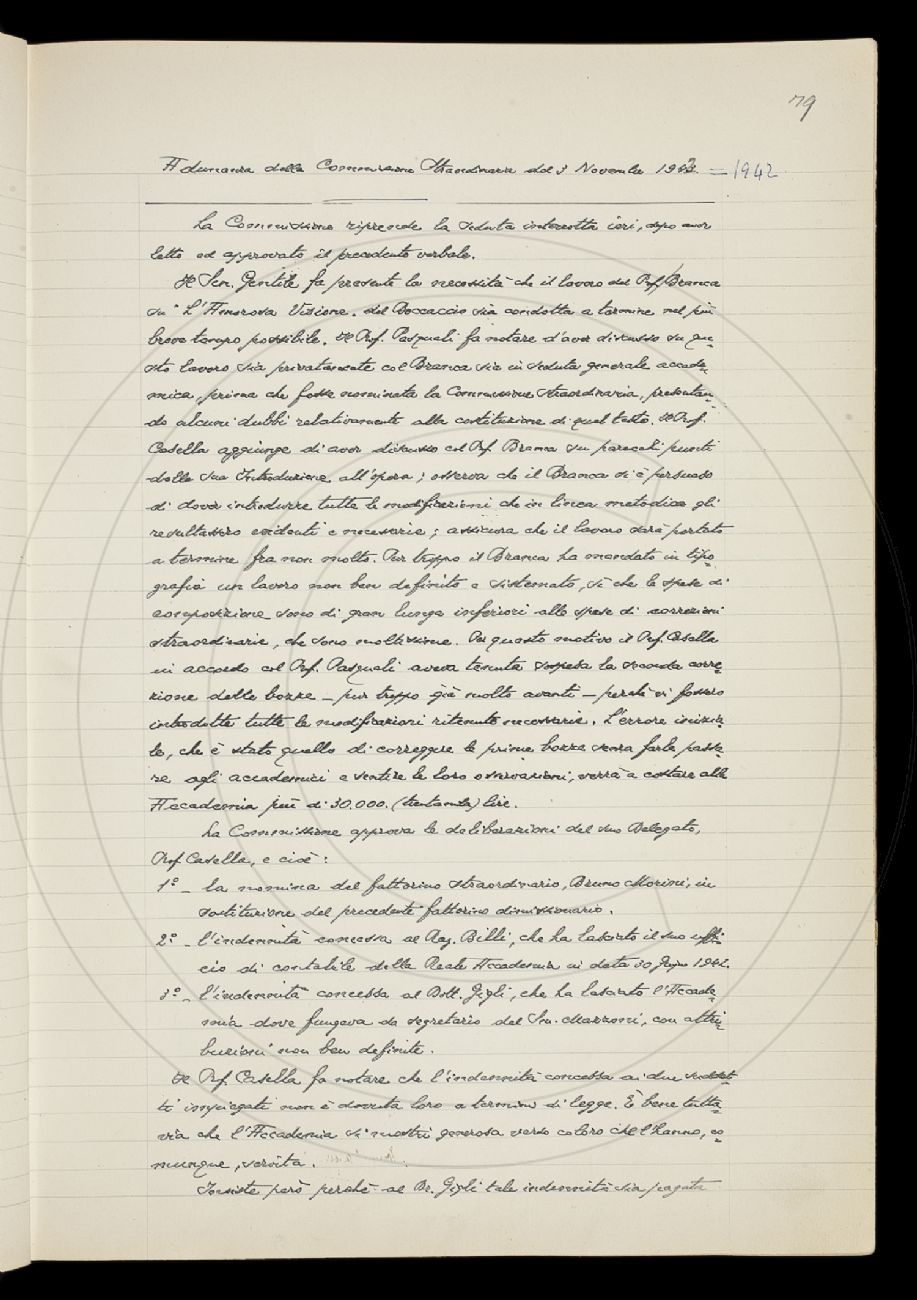 79
Adunanza della Commissione Straordinaria del 3 Novembre 1943. = 1942.
La Commissione riprende la seduta interrotta ieri, dopo aver
letto ed approvato il precedente verbale.
Il Sen. Gentile fa presente la necessità che il lavoro del Prof. Branca
su "L'Amorosa Visione" del Boccaccio sia condotta a termine nel più
breve tempo possibile. Il Prof. Pasquali fa notare d'aver discusso su que-
sto lavoro sia privatamente col Branca sia in seduta generale accade-
mica, prima che fosse nominata la Commissione straordinaria, presentan-
do alcuni dubbi relativamente alla costituzione di quel testo. Il Prof.
Casella aggiunge di aver discusso col Prof. Branca su parecchi punti
della sua Introduzione all'opera; osserva che il Branca si è persuaso
di dover introdurre tutte le modificazioni che in linea metodica gli
risultassero evidenti e necessarie; assicura che il lavoro sarà portato
a termine fra non molto. Pur troppo il Branca ha mandato in tipo-
grafia un lavoro non ben definito e sistemato, sì che le spese di
composizione sono di gran lunga inferiori alle spese di correzioni
straordinarie, che sono moltissime. Per questo motivo il Prof. Casella
in accordo col Prof. Pasquali aveva tenuta sospesa la seconda corre-
zione delle bozze - pur troppo già molto avanti - perchè vi fossero
introdotte tutte le modificazioni ritenute necessarie. L'errore inizia-
le, che è stato quello di correggere le prime bozze senza farle passa-
re agli accademici e sentire le loro osservazioni, verrà a costare alla
Accademia più di 30.000. (trentamila) lire.
La Commissione approva le deliberazioni del suo Delegato,
Prof. Casella, e cioè:
1° - la nomina del fattorino straordinario, Bruno Morini, in
sostituzione del precedente fattorino dimissionario.
2° - l'indennità concessa al Rag. Billi, che ha lasciato il suo uffi-
cio di contabile della Reale Accademia in data 30 Giugno 1942.
3° - l'indennità concessa al Dott. Gigli, che ha lasciato l'Accade-
mia dove fungeva da segretario del Sen. Mazzoni, con attri-
buzioni non ben definite.
Il Prof. Casella fa notare che l'indennità concessa ai due suddet-
ti impiegati non è dovuta loro a termini di legge. È bene tutta-
via che l'Accademia si mostri generosa verso coloro che l'hanno, co-
munque, servita.
Insiste però perchè al Dr. Gigli tale indennità sia pagata